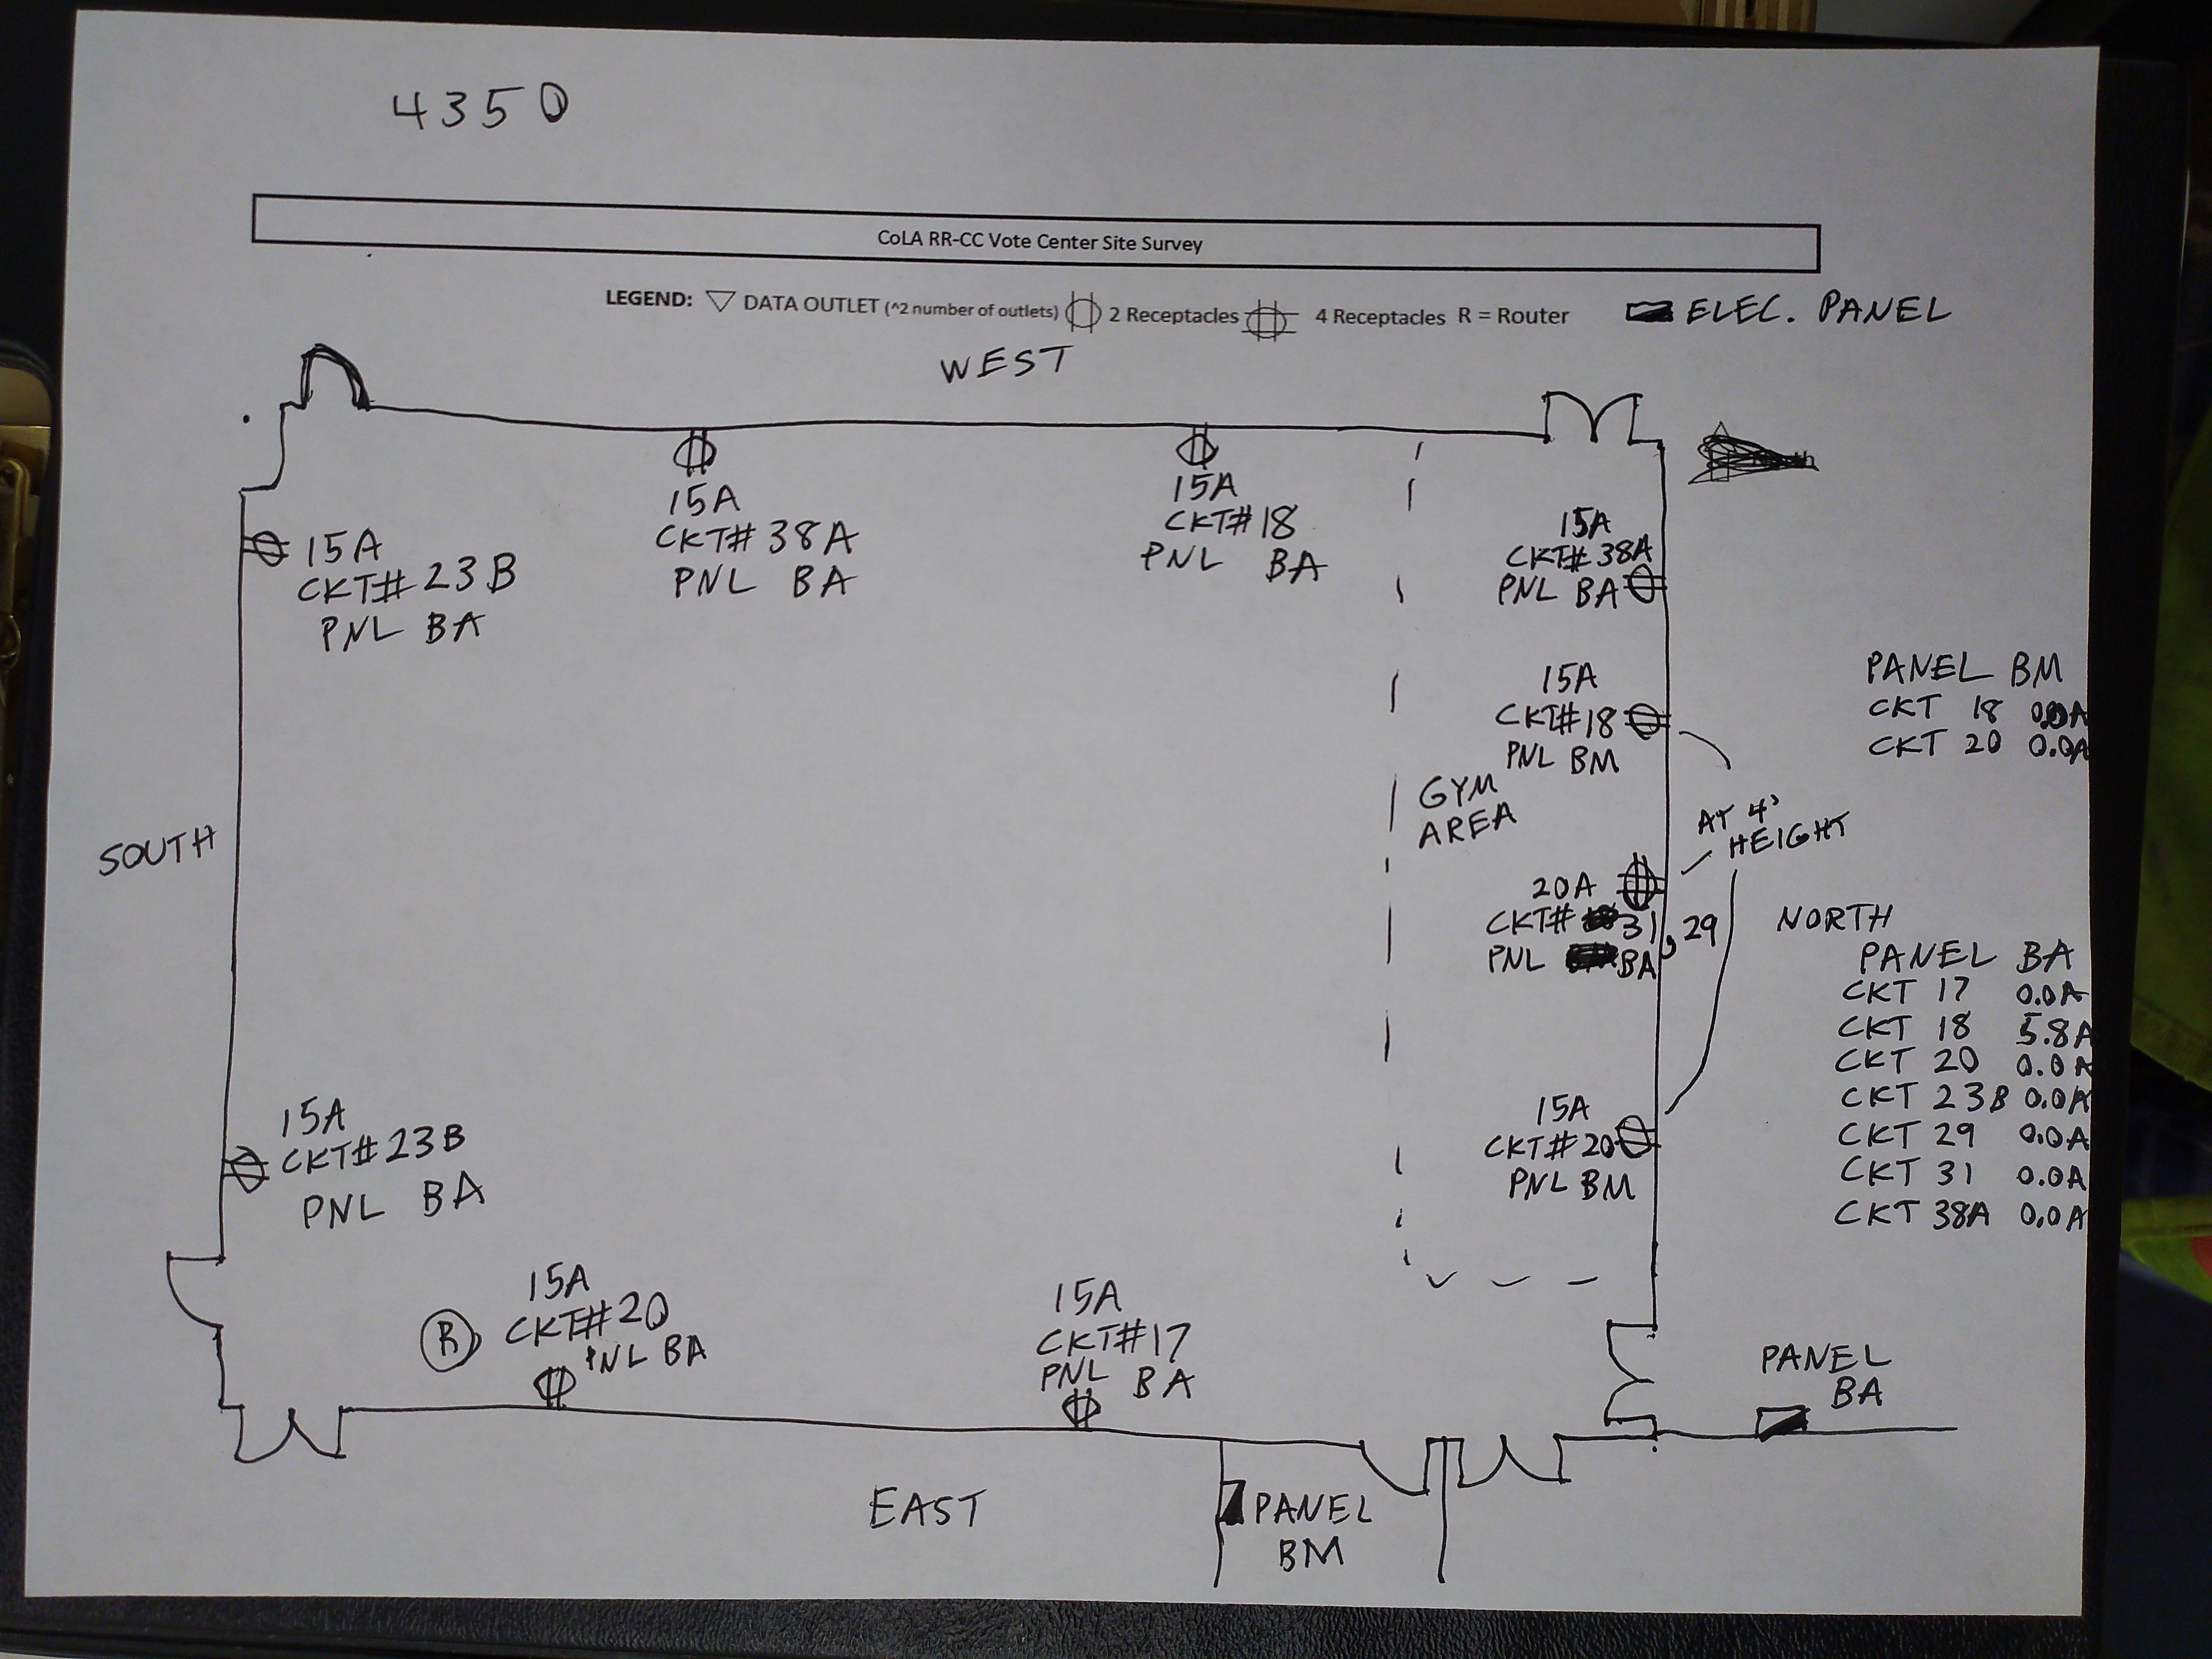 4350
CoLA RR-CC Vote Center Site Survey
LEGEND: DATA OUTLET (^2 number of outlets) 2 Receptacles 4 Receptacles R = Router ELEC. PANEL
WEST
15A
CKT# 38A
PNL BA
15A
CKT# 18
PNL BA
15A
CKT# 23B
PNL BA
15A
CKT# 38A
PNL BA
15A
CKT# 18
PNL BM
PANEL BM
CKT 18 0.0A
CKT 20 0.0A
GYM
AREA
AT 4'
HEIGHT
SOUTH
20A
CKT# 31, 29
PNL BA
NORTH
PANEL BA
CKT 17 0.0A
CKT 18 5.8A
CKT 20 0.0A
CKT 23B 0.0A
CKT 29 0.0A
CKT 31 0.0A
CKT 38A 0.0A
15A
CKT# 23B
PNL BA
15A
CKT# 20
PNL BM
R
15A
CKT# 20
PNL BA
15A
CKT# 17
PNL BA
PANEL
BA
EAST
PANEL
BM